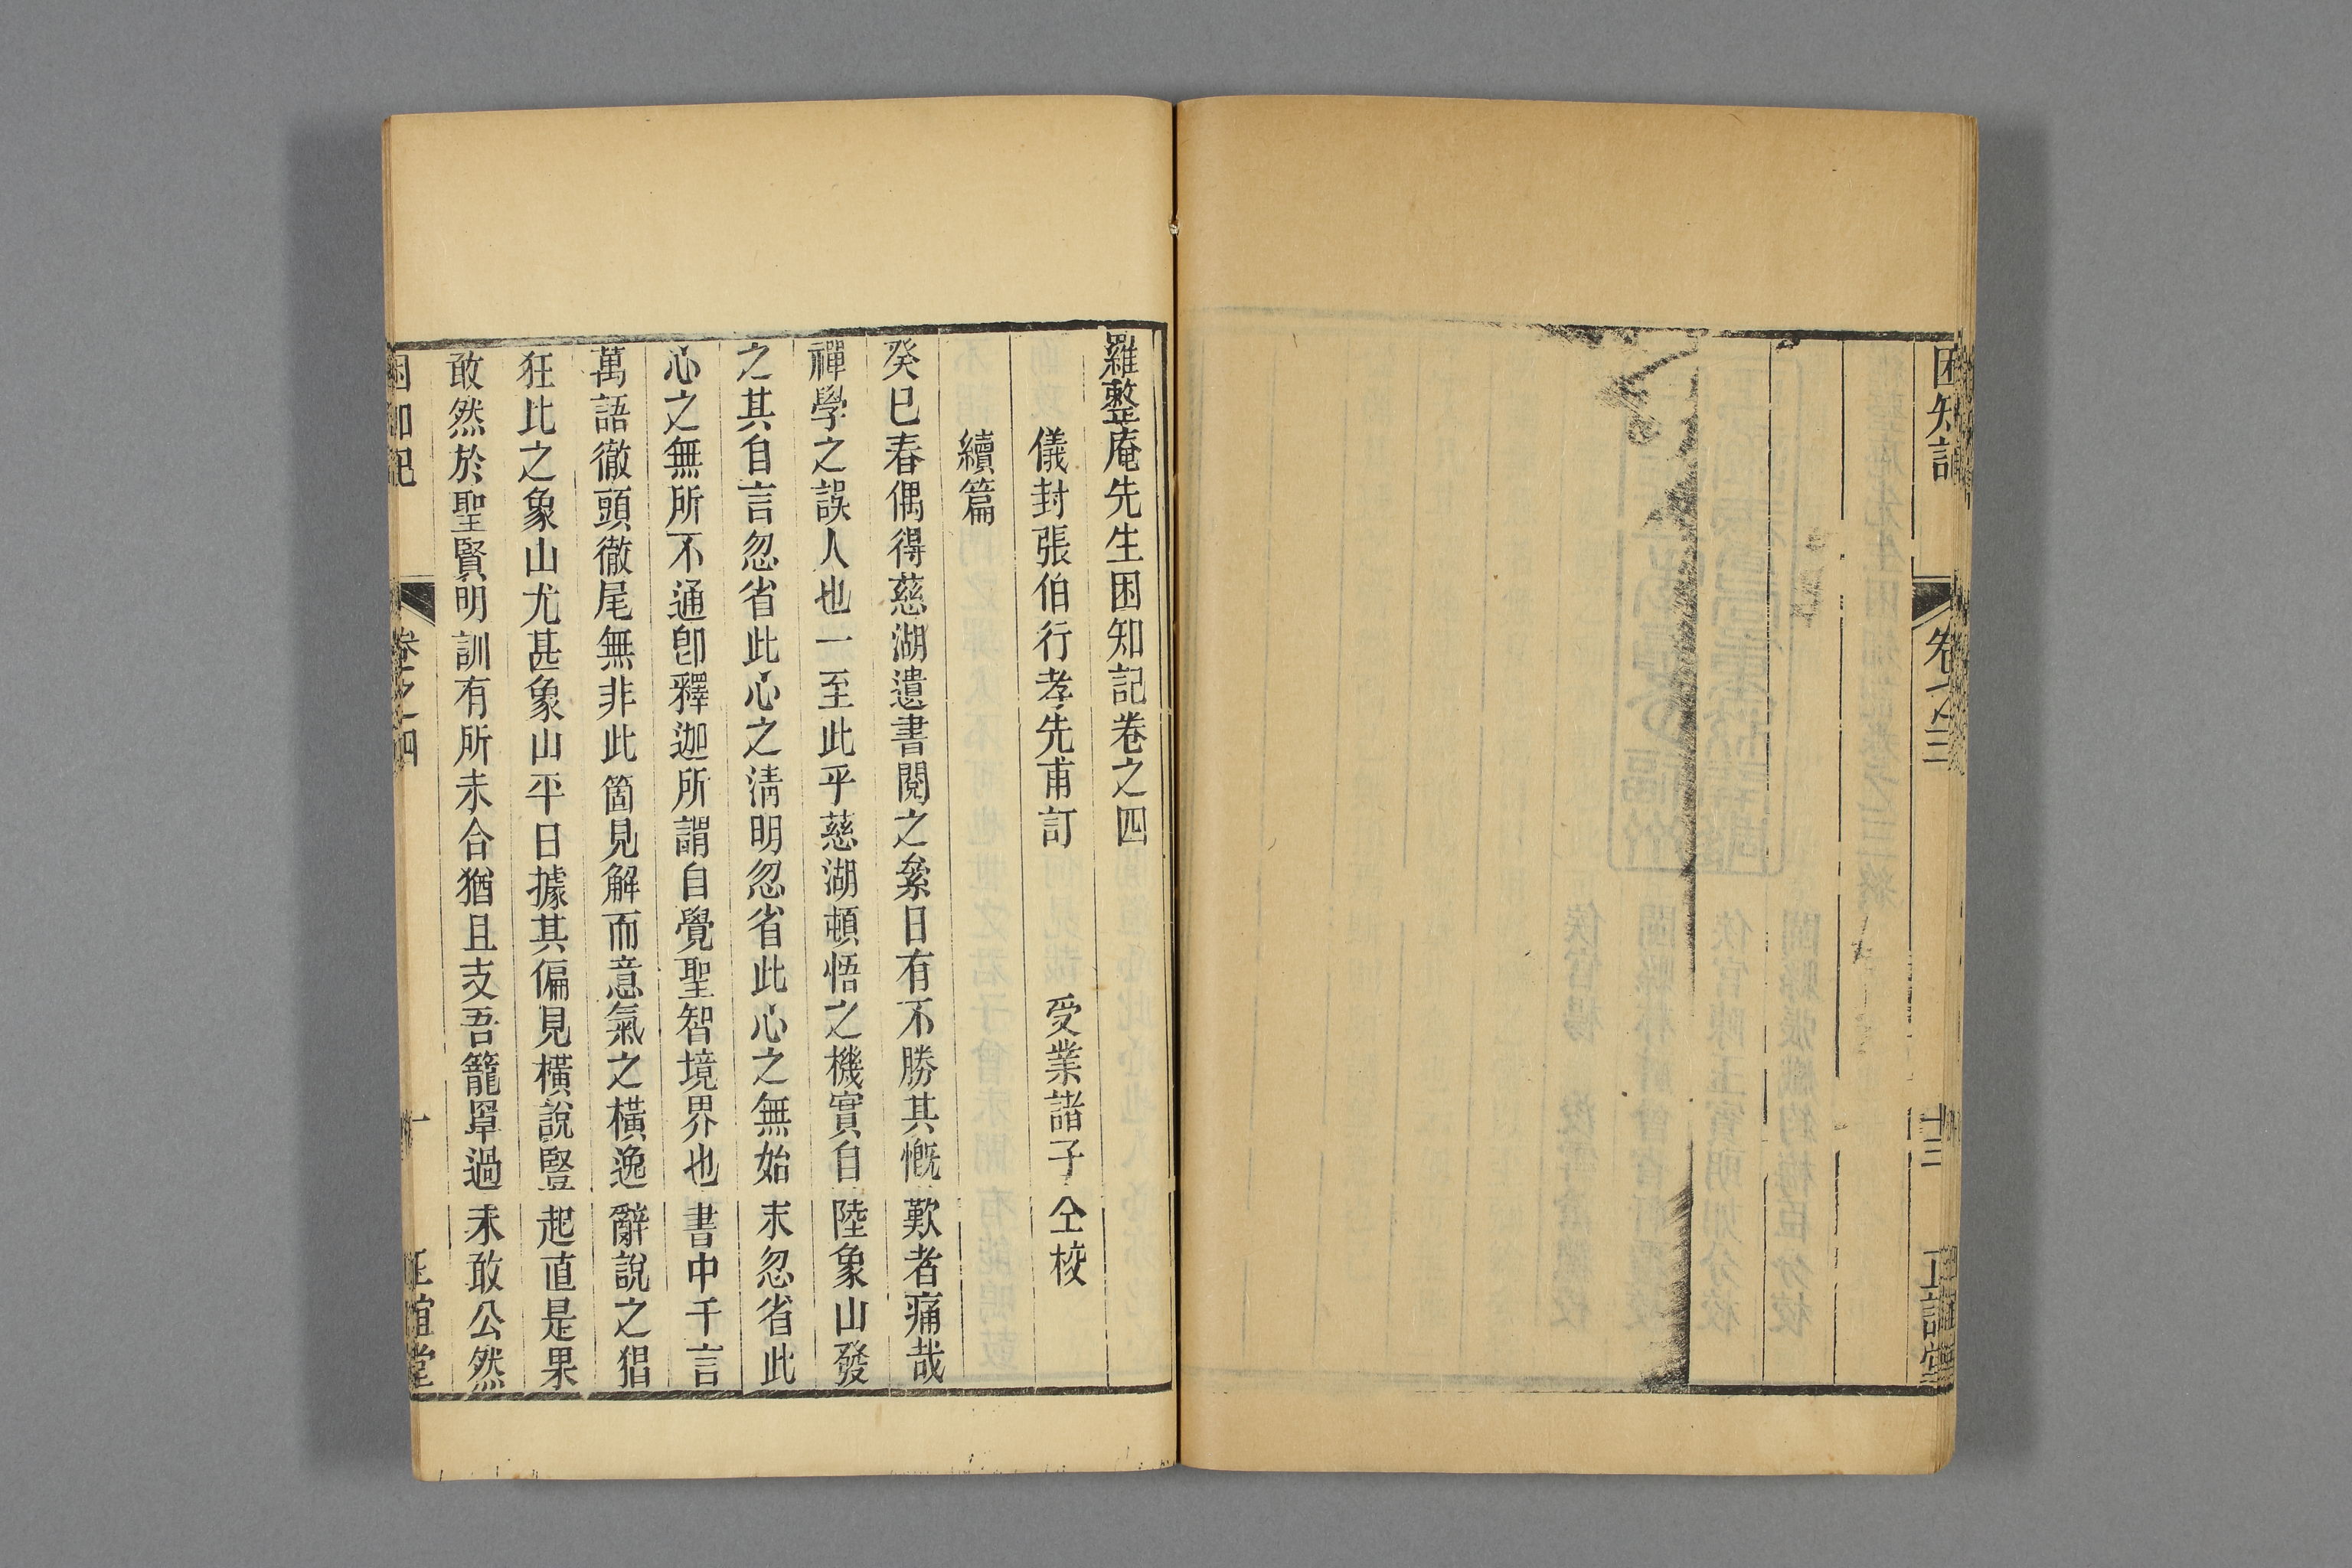 困知記
卷之三
十三
正誼堂
羅整庵先生困知記卷之四
儀封張伯行孝先甫訂 受業諸子仝校
續篇
癸巳春偶得慈湖遺書閱之絫日有不勝其慨歎者痛哉
禪學之誤人也一至此乎慈湖頓悟之機實自陸象山發
之其自言忽省此心之淸明忽省此心之無始末忽省此
心之無所不通卽釋迦所謂自覺聖智境界也書中千言
萬語徹頭徹尾無非此箇見解而意氣之橫逸辭說之猖
狂比之象山尤甚象山平日據其偏見橫說豎起直是果
敢然於聖賢明訓有所未合猶且支吾籠罩過未敢公然
困知記
卷之四
一
正誼堂